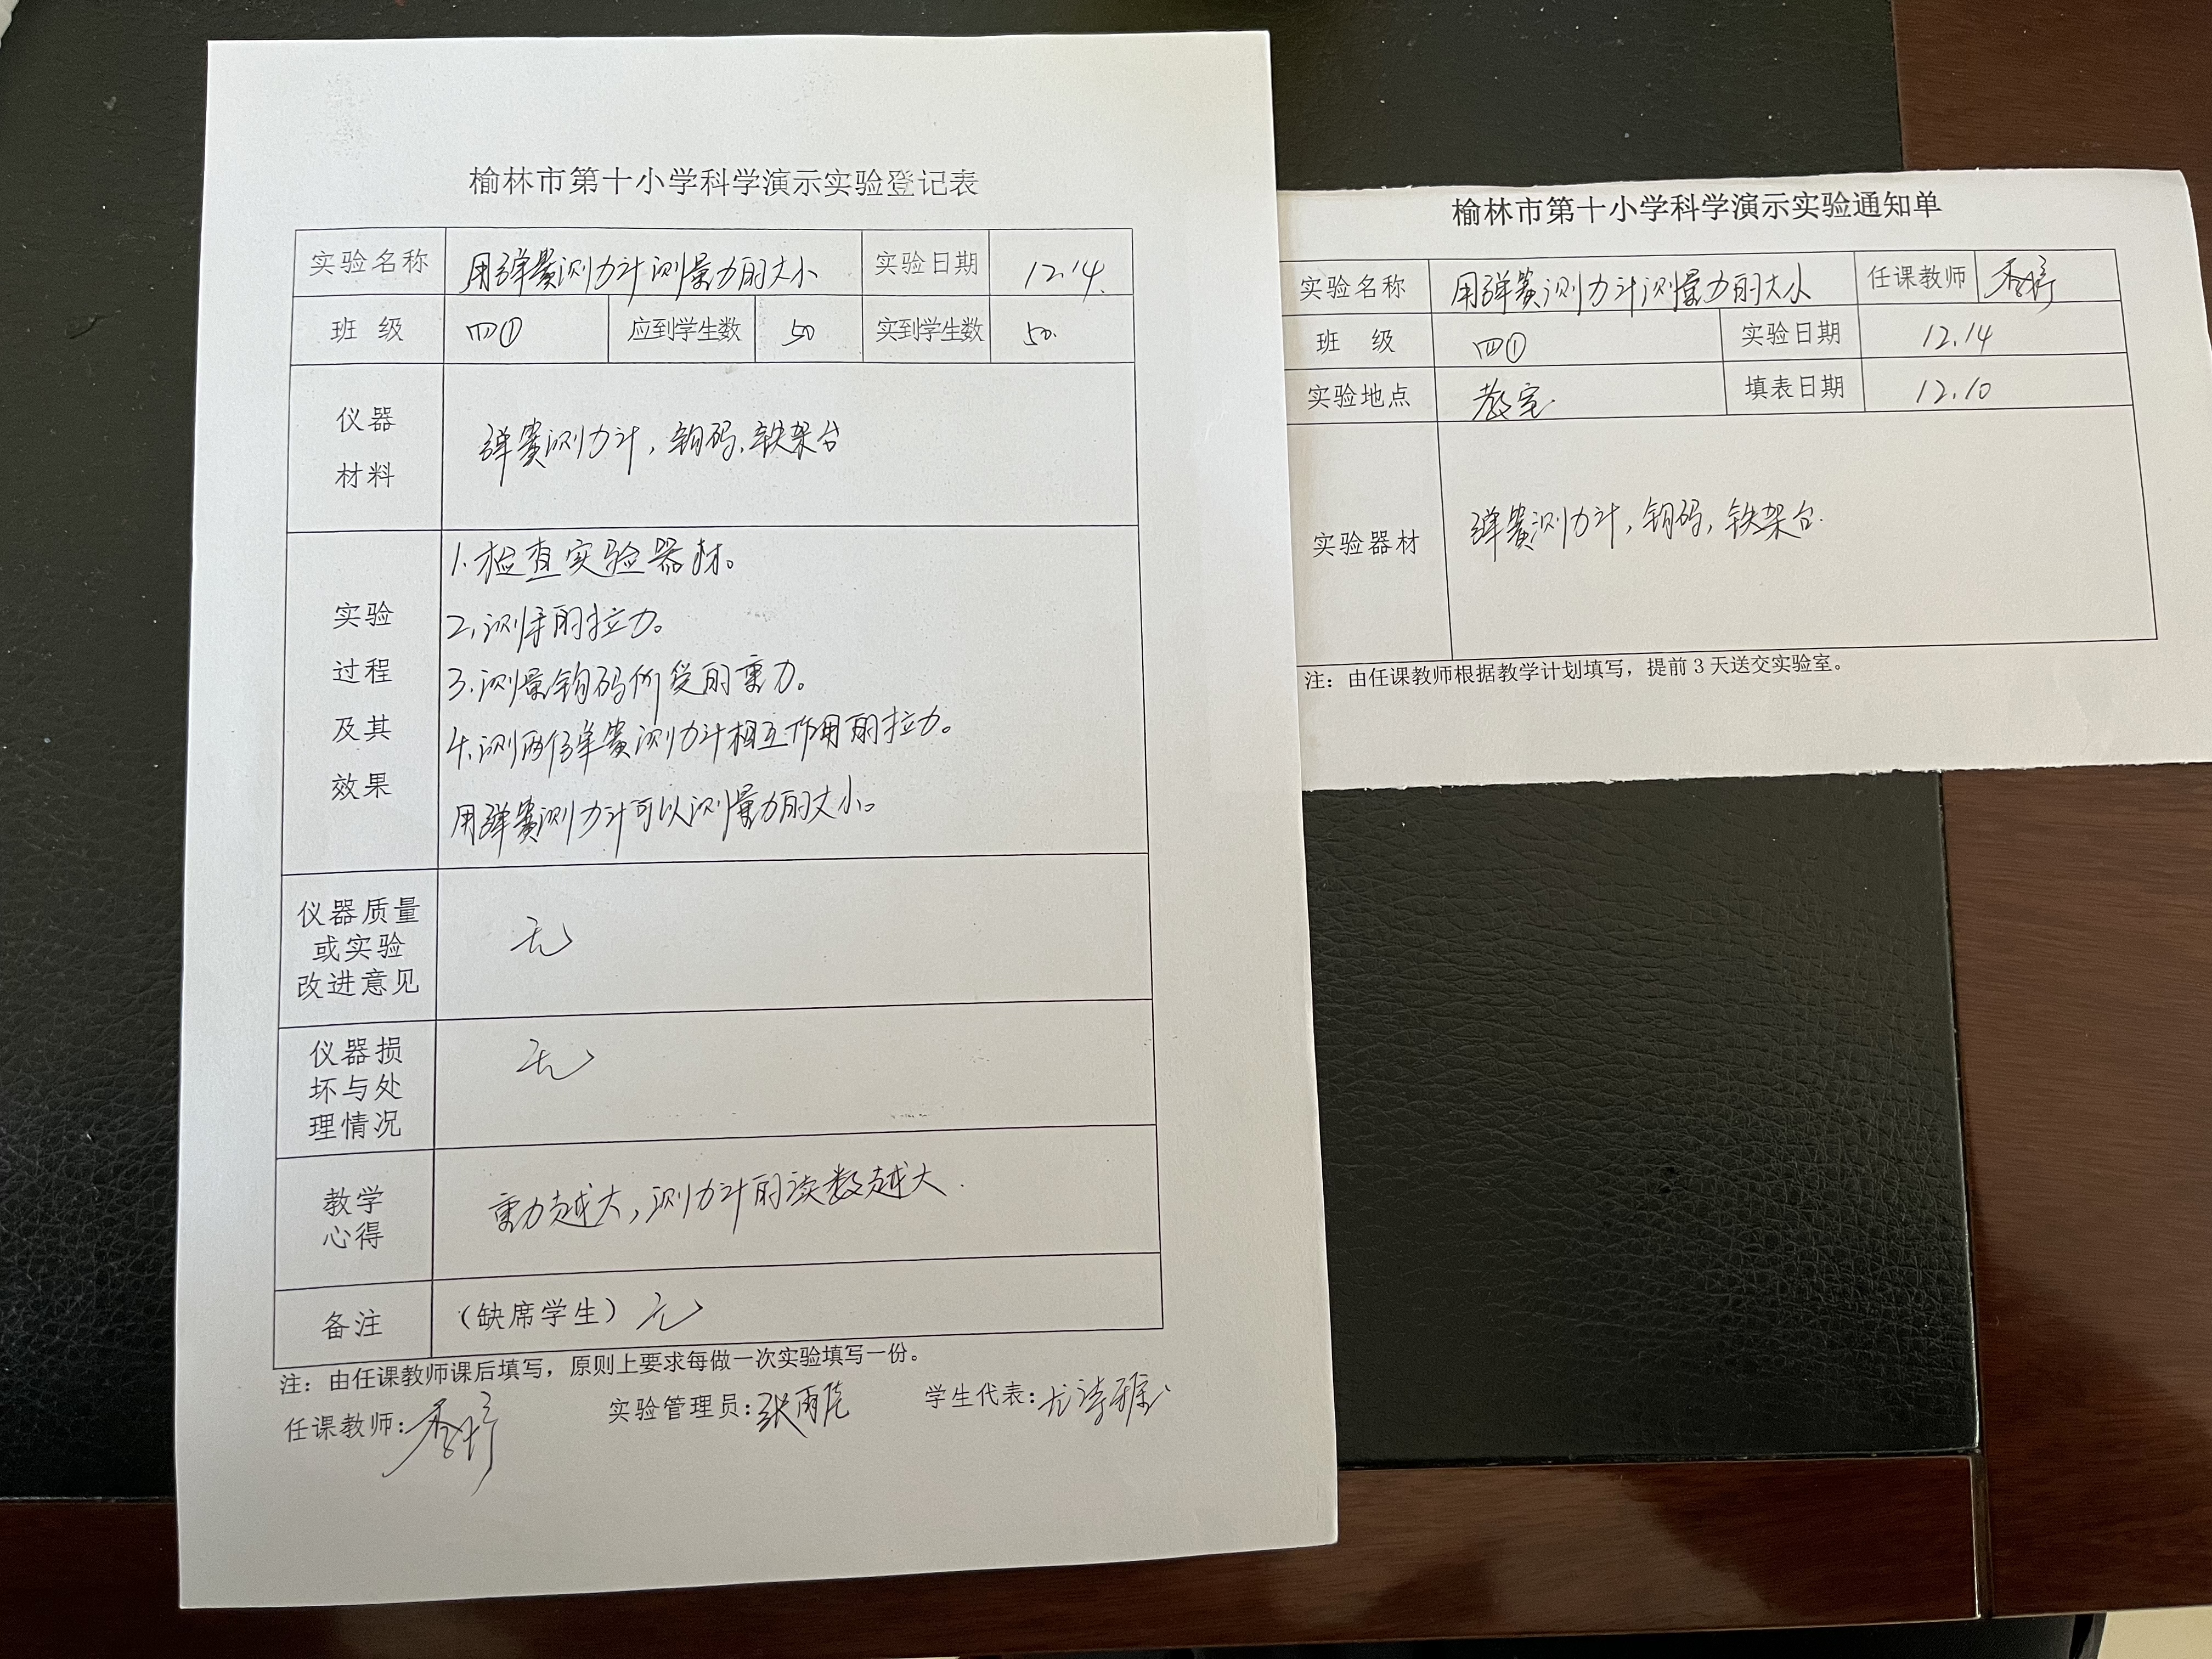 榆林市第十小学科学演示实验登记表
实验名称 用弹簧测力计测量力的大小 实验日期 12.14.
班 级 四① 应到学生数 50 实到学生数 50.
仪器
材料
弹簧测力计,钩码,铁架台
实验
过程
及其
效果
1.检查实验器材。
2.测手的拉力。
3.测量钩码所受的重力。
4.测两个弹簧测力计相互作用的拉力。
用弹簧测力计可以测量力的大小。
仪器质量
或实验
改进意见
无
仪器损
坏与处
理情况
无
教学
心得
重力越大,测力计的读数越大.
备注 (缺席学生) 无
注:由任课教师课后填写,原则上要求每做一次实验填写一份。
任课教师: 实验管理员: 学生代表:
榆林市第十小学科学演示实验通知单
实验名称 用弹簧测力计测量力的大小 任课教师
班 级 四① 实验日期 12.14
实验地点 教室. 填表日期 12.10
实验器材 弹簧测力计,钩码,铁架台.
注:由任课教师根据教学计划填写,提前3天送交实验室。